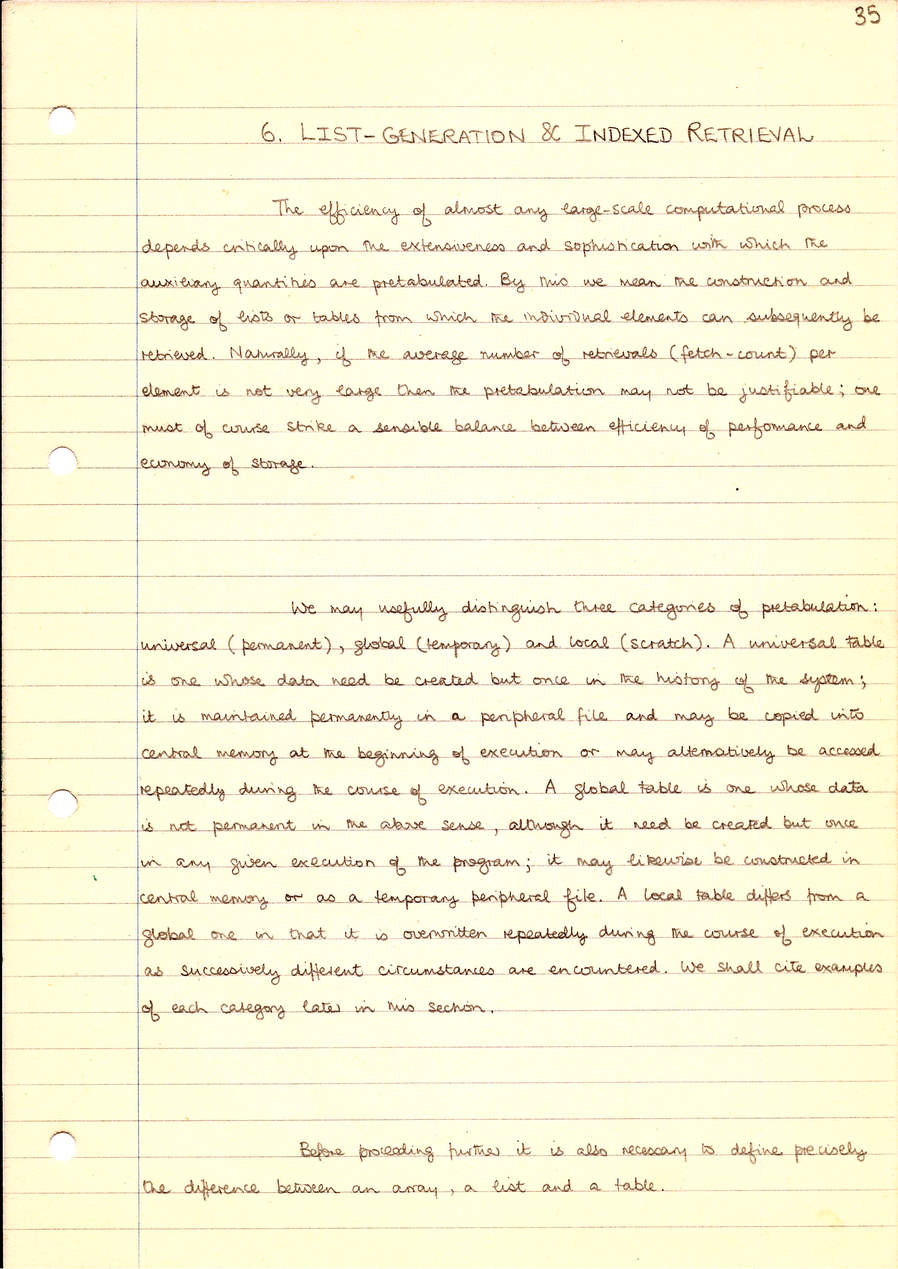 35
6. LIST-GENERATION & INDEXED RETRIEVAL
The efficiency of almost any large-scale computational process
depends critically upon the extensiveness and sophistication with which the
auxiliary quantities are pretabulated. By this we mean the construction and
storage of lists or tables from which the individual elements can subsequently be
retrieved. Naturally, if the average number of retrievals (fetch-count) per
element is not very large then the pretabulation may not be justifiable; one
must of course strike a sensible balance between efficiency of performance and
economy of storage.
We may usefully distinguish three categories of pretabulation:
universal (permanent), global (temporary) and local (scratch). A universal table
is one whose data need be created but once in the history of the system;
it is maintained permanently in a peripheral file and may be copied into
central memory at the beginning of execution or may alternatively be accessed
repeatedly during the course of execution. A global table is one whose data
is not permanent in the above sense, although it need be created but once
in any given execution of the program; it may likewise be constructed in
central memory or as a temporary peripheral file. A local table differs from a
global one in that it is overwritten repeatedly during the course of execution
as successively different circumstances are encountered. We shall cite examples
of each category later in this section.
Before proceeding further it is also necessary to define precisely
the difference between an array, a list and a table.